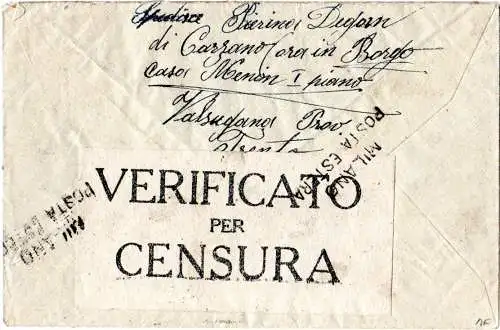 Spedisce Pierina Degan
di Carzano (ora in Borgo
casa Menon I piano
Valsugana Prov.
Trento
MILANO
POSTA ESTERA
VERIFICATO
PER
CENSURA
MILANO
POSTA ESTERA